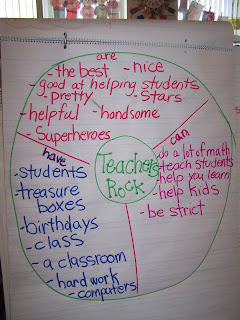 are
-the best -nice
-good at helping students
-pretty -Stars
-helpful -handsome
-Superheroes
can
do a lot of math
-teach students
-help you learn
-help kids
-be strict
Teachers
Rock
have
-students
-treasure
boxes
-birthdays
-class
-a classroom
-hard work
-computers